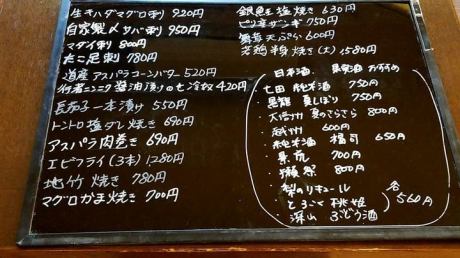 生キハダマグロ刺 920円
自家製〆サバ刺 950円
マダイ刺 800円
たこ足刺 780円
道産アスパラコーンバター 520円
行者ニンニク醤油漬けの冷奴 420円
長茄子一本漬け 550円
トントロ塩ダレ焼き 690円
アスパラ肉巻き 690円
エビフライ(3本) 1280円
地竹焼き 780円
マグロかま焼き 700円
銀兜塩焼き 630円
ザンギ 750円
舞茸天ぷら 600円
若鶏半身焼き(大) 1580円
日本酒 おすすめ
七田 純米酒 750円
黒龍 夏しぼり 750円
大信州 夏のさらさら 800円
越州 600円
純米酒 福司 650円
東荒 700円
獺祭 800円
梨のリキュール
とろこく桃姫
深山ぶどう酒
各560円